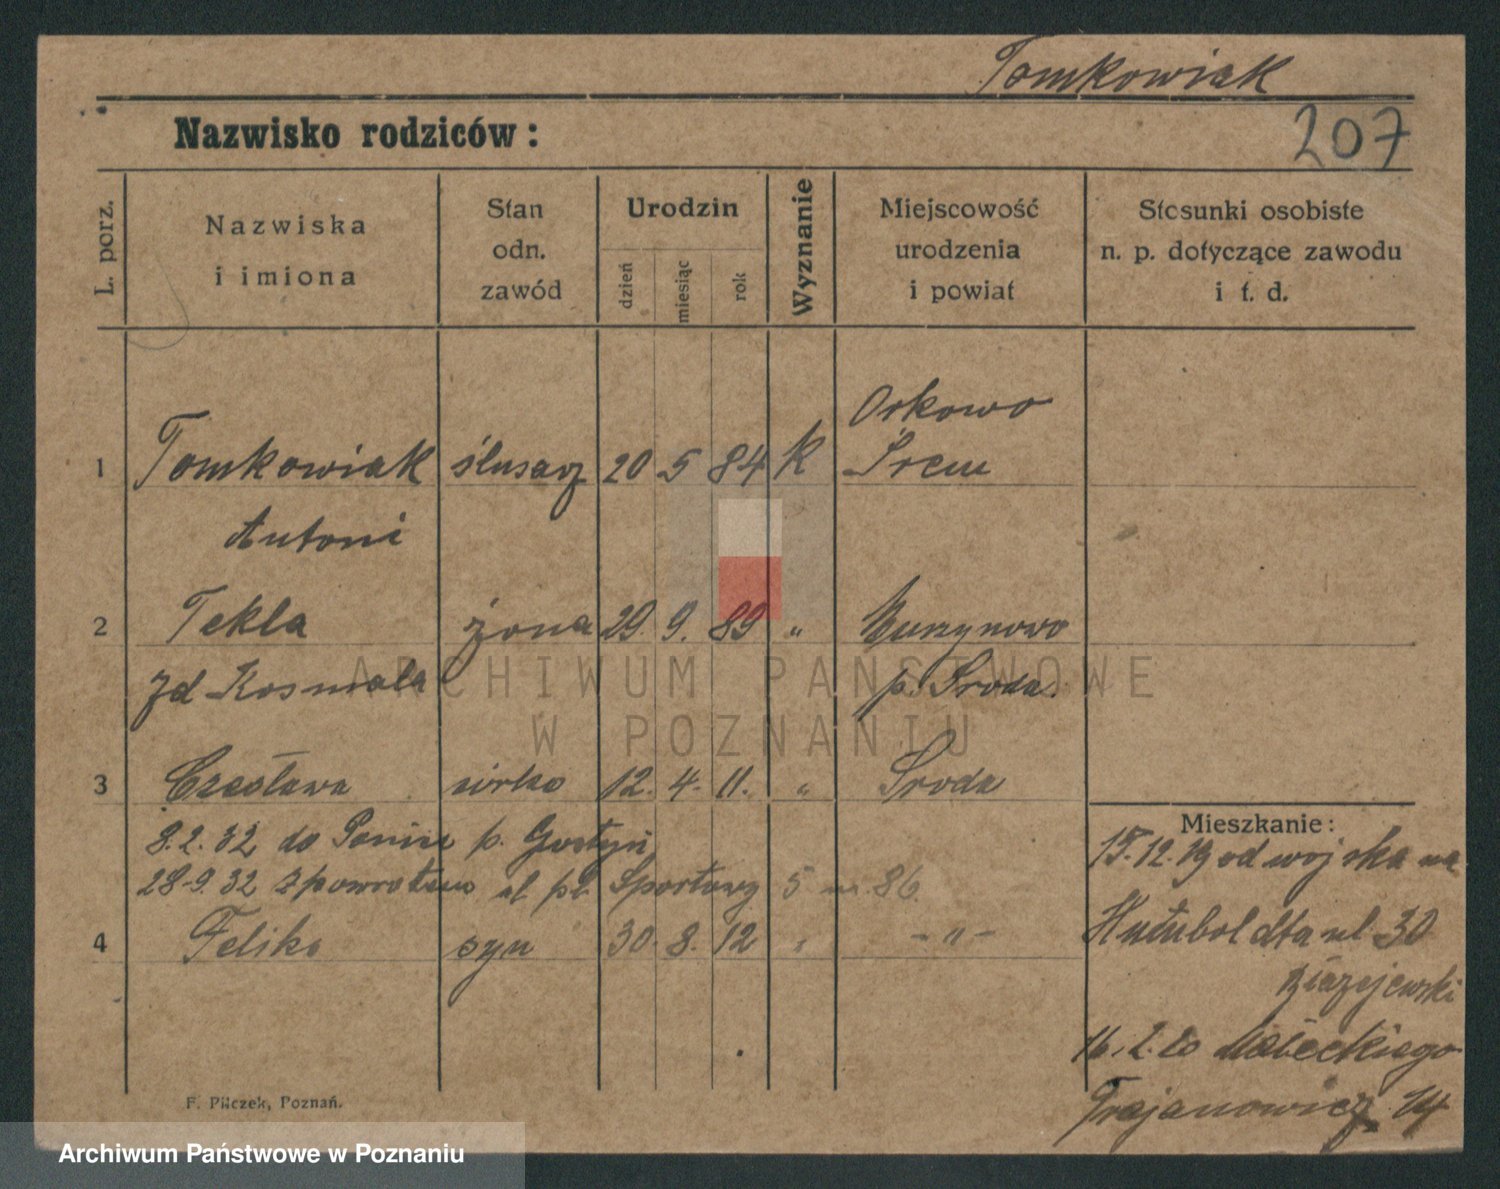 Tomkowiak
207
Nazwisko rodziców:
L. porz.
Nazwiska
i imiona
Stan
odn.
zawód
Urodzin
dzień
miesiąc
rok
Wyznanie
Miejscowość
urodzenia
i powiat
Stosunki osobiste
n. p. dotyczące zawodu
i t. d.
Orkowo
1 Tomkowiak ślusarz 20 5 84 K Śrem
Antoni
2 Tekla żona 29. 9. 89 " Murzynowo
zd Kosmala p. Środa.
3 Czesława córka 12. 4. 11. " Środa
8.2.32 do p. Gostyń
28.9.32 z powrotem ul Sportowy 5 86.
4 Feliks syn 30. 8. 12 " - " -
Mieszkanie:
15.12.19 od wojska na
ul 30
Błażejewski
16.2.20 Małeckiego
Trajanowicz 14
F. Pilczek, Poznań.
ARCHIWUM PAŃSTWOWE
W POZNANIU
Archiwum Państwowe w Poznaniu